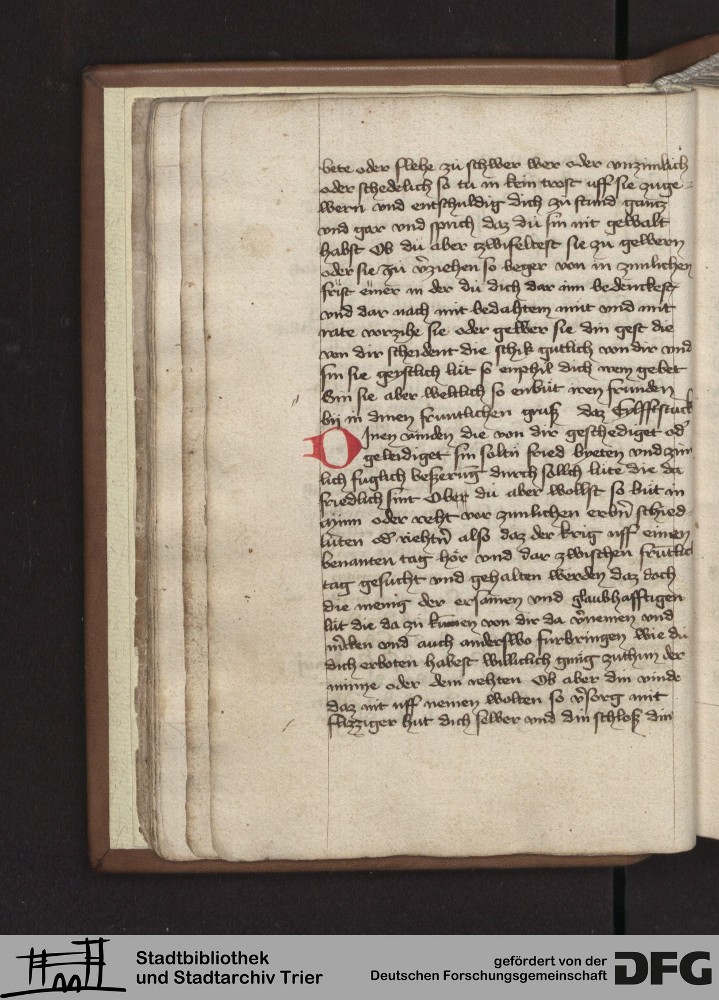 bete oder flehe zü schwer wer oder vnzimlich
oder schedelich so tü in kein trost uff sie zuge-
wern vnd entschuldig dich zü stund gantz
vnd gar vnd sprich daz dü sin nit gewalt
habst Ob dü aber zwifeltest sie zü gewern
oder sie zü v̄ziehen so beger von in zimlichen
frist einer in der dü dich dar inn bedenckest
vnd dar nach mit bedahtem müt vnd mit
rate vorzihe sie oder gewer sie din gest die
von dir scheident die schik gütlich von dir vnd
sin sie geystlich lüt so enphil dich irem gebet
Sin sie aber weltlich so enbüt iren frunden
bij in dinen fruntlichen grüß daz Eylfft stuck
Dinen vinden die von dir geschediget od̄
geleidiget sin soltü fried byeten vnd zim
lich füglich beßerūg durch sollich lüte die da
friedlich sint Ober dü aber wollst so büt in
mynn oder reht vor zimlichen erbn̄ schied-
luten od̄ riehtn̄ also daz der krig uff einen
benanten tag hör vnd dar zwischen frütlich
tag gesucht vnd gehalten werden daz doch
die menig der ersamen vnd glaubhafftigen
lüt die da zü kumen von dir da v̄nemen vnd
m̄cken vnd auch anderswo furbringen wie dü
dich erboten habest williclich gnüg zuthun der
minne oder dem rehten Ob aber din vinde
daz nit uff nemen wolten so v̄sorg mit
flizziger hüt dich selber vnd din schloß din
Stadtbibliothek
und Stadtarchiv Trier
gefördert von der
Deutschen Forschungsgemeinschaft
DFG